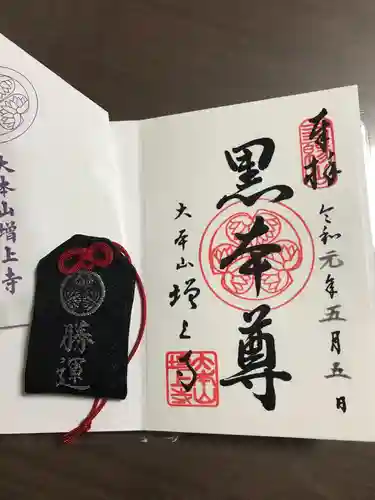 奉拝
令和元年五月五日
黒本尊
大本山増上寺
勝運
大本山増上寺